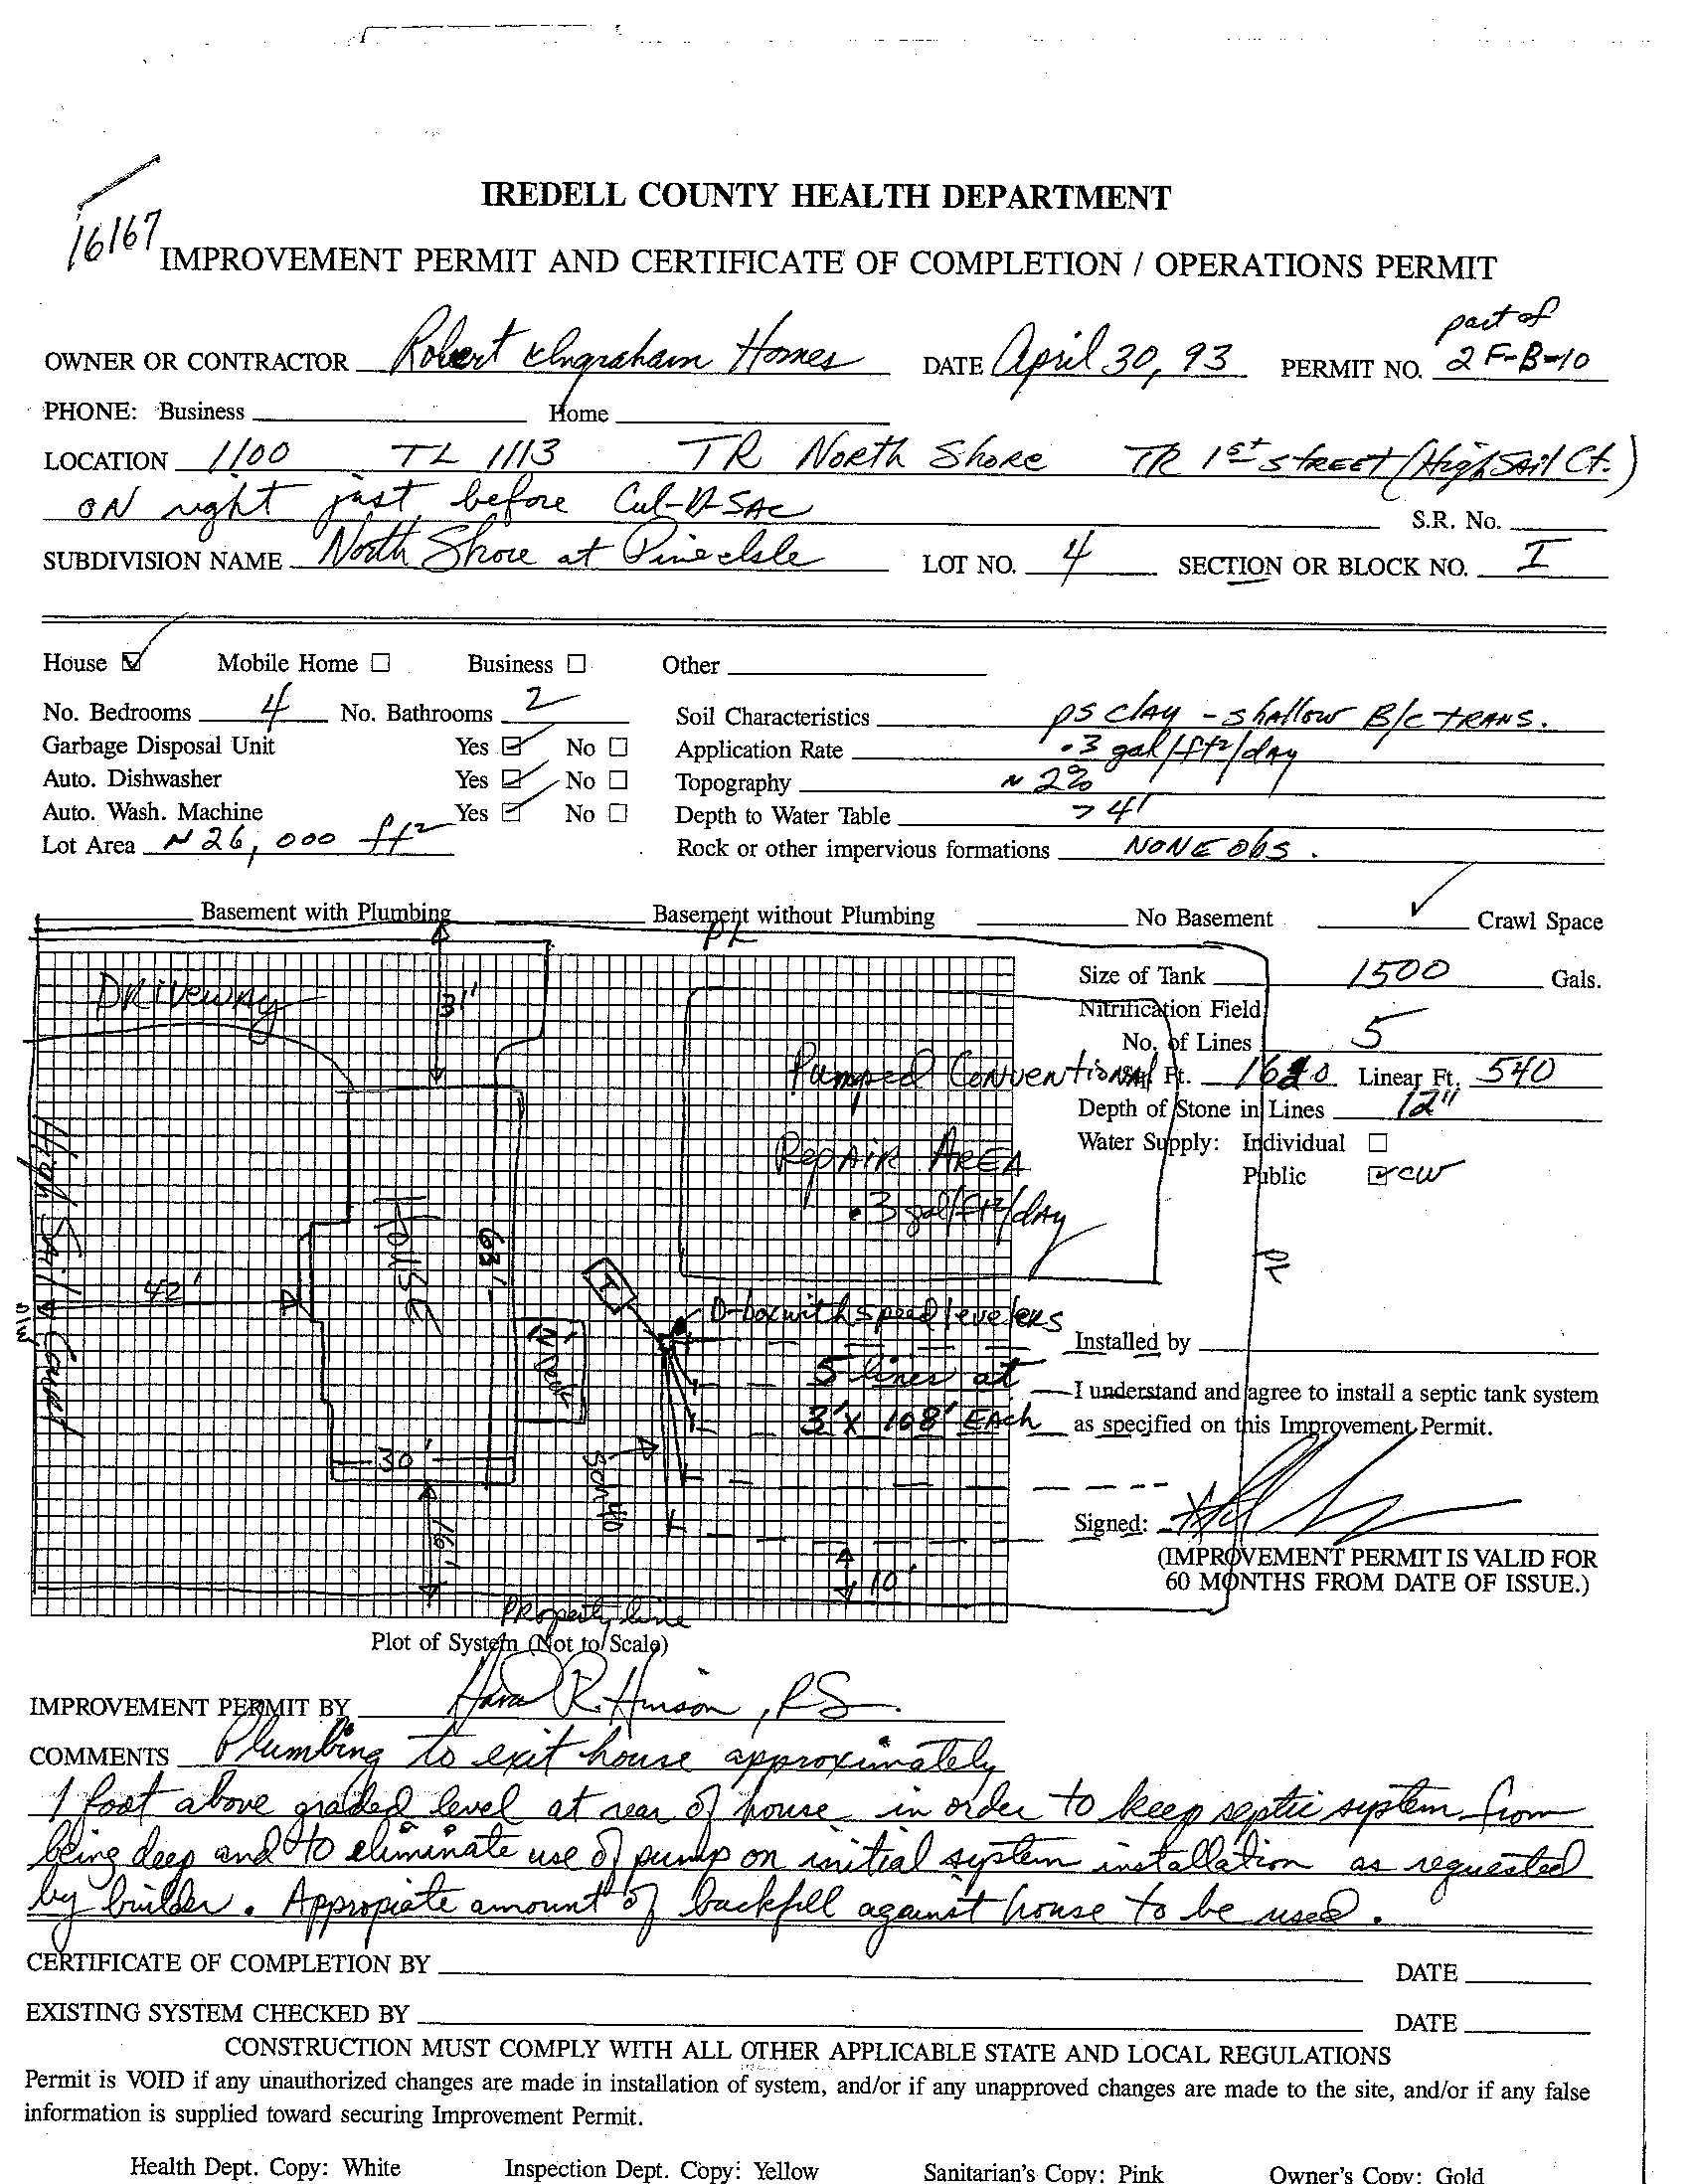 IREDELL COUNTY HEALTH DEPARTMENT
16167
IMPROVEMENT PERMIT AND CERTIFICATE OF COMPLETION / OPERATIONS PERMIT
part of
OWNER OR CONTRACTOR Robert Ingraham Homes DATE April 30, 93 PERMIT NO. 2 F-B-10
PHONE: Business Home
LOCATION 1100 TL 1113 TR North Shore TR 1st street (High Sail Ct.)
on right just before Cul-D-Sac S.R. No.
SUBDIVISION NAME North Shore at Pine Isle LOT NO. 4 SECTION OR BLOCK NO. I
House Mobile Home Business Other
No. Bedrooms 4 No. Bathrooms 2 Soil Characteristics ps clay - shallow B/c trans.
Garbage Disposal Unit Yes No Application Rate .3 gal/ft2/day
Auto. Dishwasher Yes No Topography ~ 2%
Auto. Wash. Machine Yes No Depth to Water Table > 4'
Lot Area ~ 26,000 ft2 Rock or other impervious formations NONE obs.
Basement with Plumbing Basement without Plumbing No Basement Crawl Space
PL
Driveway
31'
Size of Tank 1500 Gals.
Nitrification Field
No. of Lines 5
Pumped Conventional Ft. 1620 Linear Ft. 540
Depth of Stone in Lines 12"
Repair Area
.3 gal/ft2/day
Water Supply: Individual
Public CW
PL
High Sail Court
R/W
42'
House
63'
T
12'
Deck
D-box with speed levelers
5 lines at
3' x 108' Each
30'
Sch 40
16'
10'
Property line
Installed by
I understand and agree to install a septic tank system
as specified on this Improvement Permit.
Signed:
(IMPROVEMENT PERMIT IS VALID FOR
60 MONTHS FROM DATE OF ISSUE.)
Plot of System (Not to Scale)
IMPROVEMENT PERMIT BY R. Hinson, RS
COMMENTS Plumbing to exit house approximately
1 foot above graded level at rear of house in order to keep septic system from
being deep and to eliminate use of pump on initial system installation as requested
by builder. Appropiate amount of backfill against house to be used.
CERTIFICATE OF COMPLETION BY DATE
EXISTING SYSTEM CHECKED BY DATE
CONSTRUCTION MUST COMPLY WITH ALL OTHER APPLICABLE STATE AND LOCAL REGULATIONS
Permit is VOID if any unauthorized changes are made in installation of system, and/or if any unapproved changes are made to the site, and/or if any false
information is supplied toward securing Improvement Permit.
Health Dept. Copy: White Inspection Dept. Copy: Yellow Sanitarian's Copy: Pink Owner's Copy: Gold